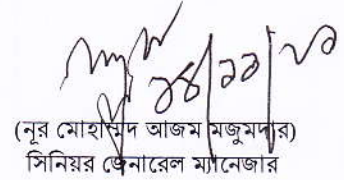 ১৪/১১/২১
(নূর মোহাম্মদ আজম মজুমদার)
সিনিয়র জেনারেল ম্যানেজার